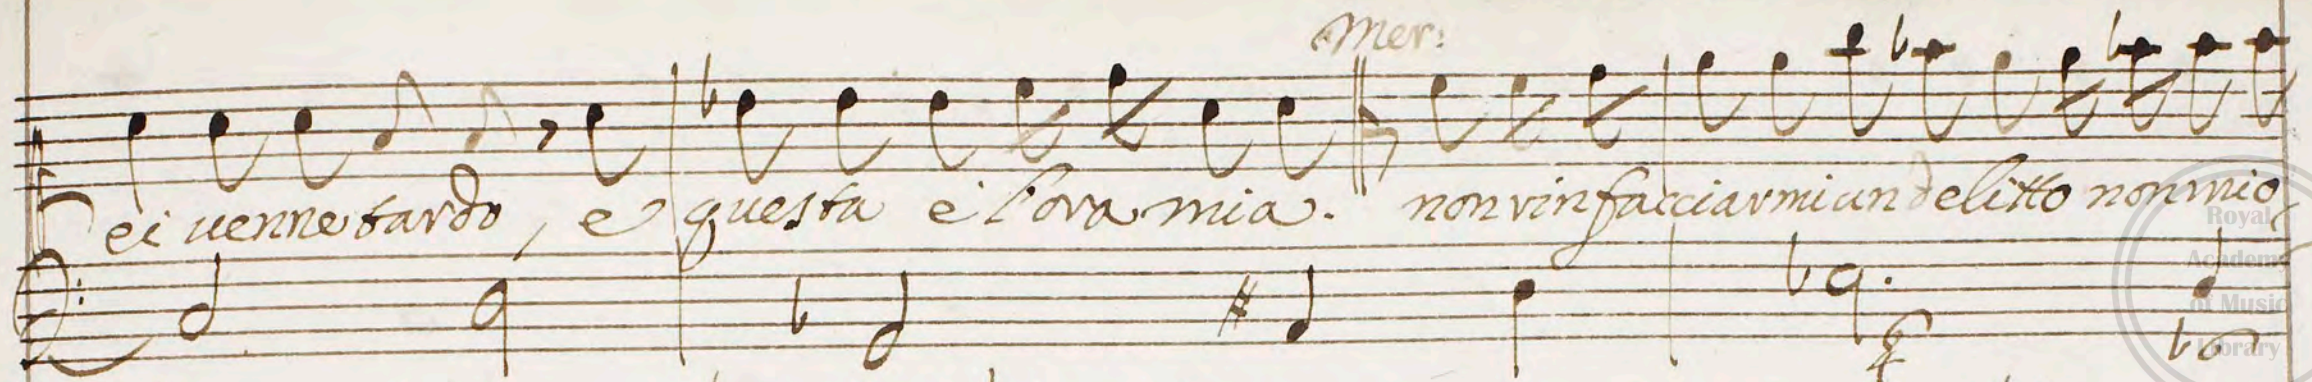 Mer:
ei venne tardo, e questa è l'ora mia. non rinfacciarmi un delitto non mio,
Royal
Academy
of Music
Library